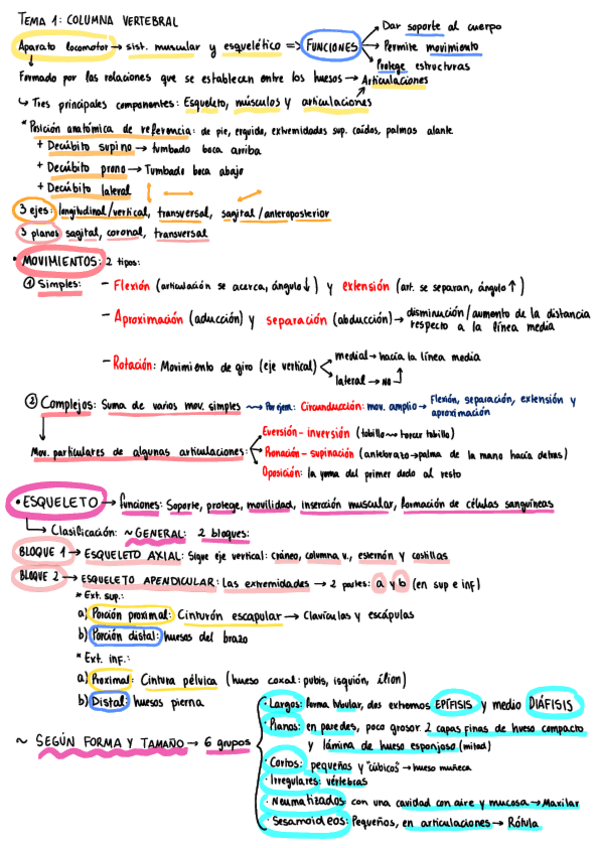 TEMA 1: COLUMNA VERTEBRAL
Aparato locomotor → sist. muscular y esquelético => FUNCIONES
Dar soporte al cuerpo
Permite movimiento
Protege estructuras
Formado por las relaciones que se establecen entre los huesos → Articulaciones
↳ Tres principales componentes: Esqueleto, músculos y articulaciones
* Posición anatómica de referencia: de pie, erguido, extremidades sup. caídos, palmas alante
+ Decúbito supino → tumbado boca arriba
+ Decúbito prono → Tumbado boca abajo
+ Decúbito lateral
3 ejes: longitudinal/vertical, transversal, sagital/anteroposterior
3 planos sagital, coronal, transversal
• MOVIMIENTOS: 2 tipos:
① Simples: - Flexión (articulación se acerca, ángulo ↓) y extensión (art. se separan, ángulo ↑)
- Aproximación (aducción) y separación (abducción) → disminución/aumento de la distancia
respecto a la línea media
- Rotación: Movimiento de giro (eje vertical)
medial → hacia la línea media
lateral → NO
② Complejos: Suma de varios mov. simples ~→ Por ejem: Circunducción: mov. amplio → Flexión, separación, extensión y
aproximación
Mov. particulares de algunas articulaciones:
Eversión - inversión (tobillo ~→ torcer tobillo)
Pronación - supinación (antebrazo → palma de la mano hacia detras)
Oposición: la yema del primer dedo al resto
• ESQUELETO → funciones: Soporte, protege, movilidad, inserción muscular, formación de células sanguíneas
↳ Clasificación: ~ GENERAL: 2 bloques:
BLOQUE 1 → ESQUELETO AXIAL: Sigue eje vertical: cráneo, columna v., esternón y costillas
BLOQUE 2 → ESQUELETO APENDICULAR: Las extremidades → 2 partes: a y b (en sup e inf)
* Ext. sup.:
a) Porción proximal: Cinturón escapular → Clavículas y escápulas
b) Porción distal: huesos del brazo
* Ext. inf.:
a) Proximal: Cintura pélvica (hueso coxal: pubis, isquión, ílion)
b) Distal: huesos pierna
~ SEGÚN FORMA Y TAMAÑO → 6 grupos
· Largos: forma tubular, dos extremos EPÍFISIS y medio DIÁFISIS
· Planos: en paredes, poco grosor. 2 capas finas de hueso compacto
y lámina de hueso esponjoso (mitad)
· Cortos: pequeños y "cúbicos" → hueso muñeca
· Irregulares: vértebras
· Neumatizados: con una cavidad con aire y mucosa → Maxilar
· Sesamoideos: Pequeños, en articulaciones → Rótula